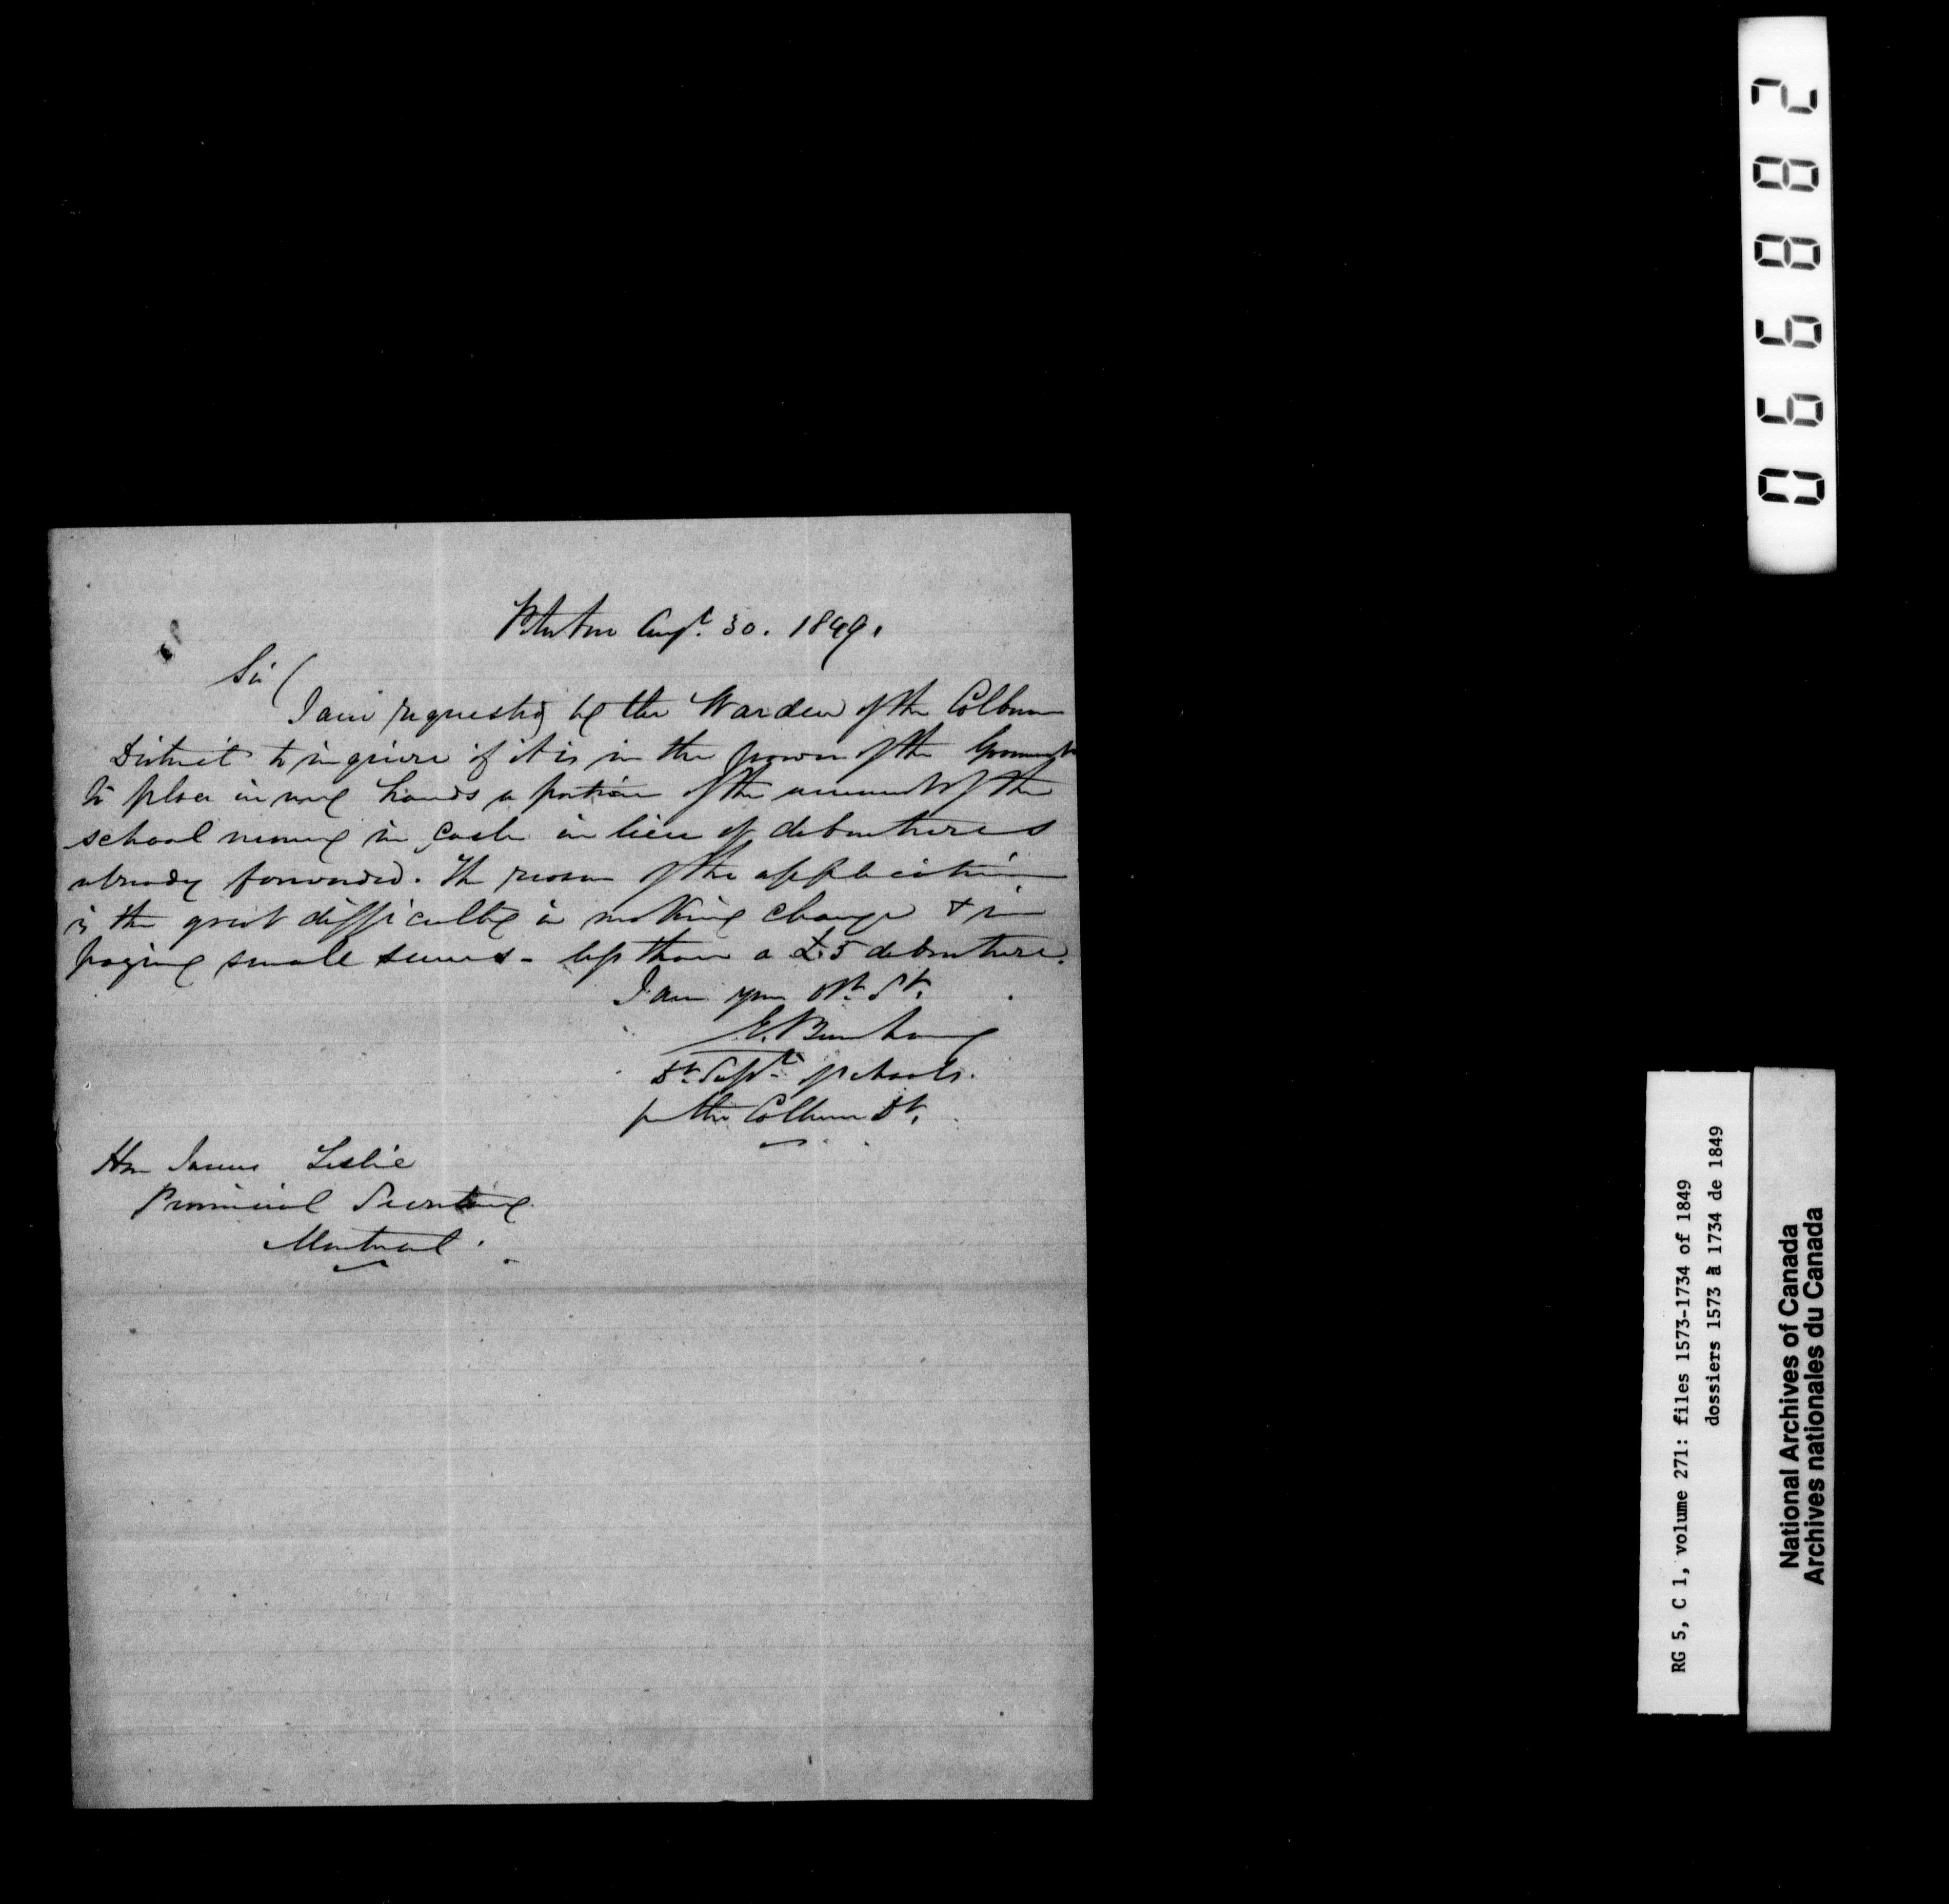 Peterboro Augt. 30. 1849.
Sir
I am requested by the Warden of the Colborne
District to inquire if it is in the power of the Governmt
to place in my hands a portion of the amount of the
school money in cash in lieu of debentures
already forwarded. The reason of the application
is the great difficulty in making change & in
paying small sums - less than a £5 debenture.
I am your Obt. St.
E. Burnham
Dt. Supt. of schools.
for the Colborne Dt.
Hon James Leslie
Provincial Secretary
Montreal
066882
RG 5, C 1, volume 271: files 1573-1734 of 1849
dossiers 1573 à 1734 de 1849
National Archives of Canada
Archives nationales du Canada